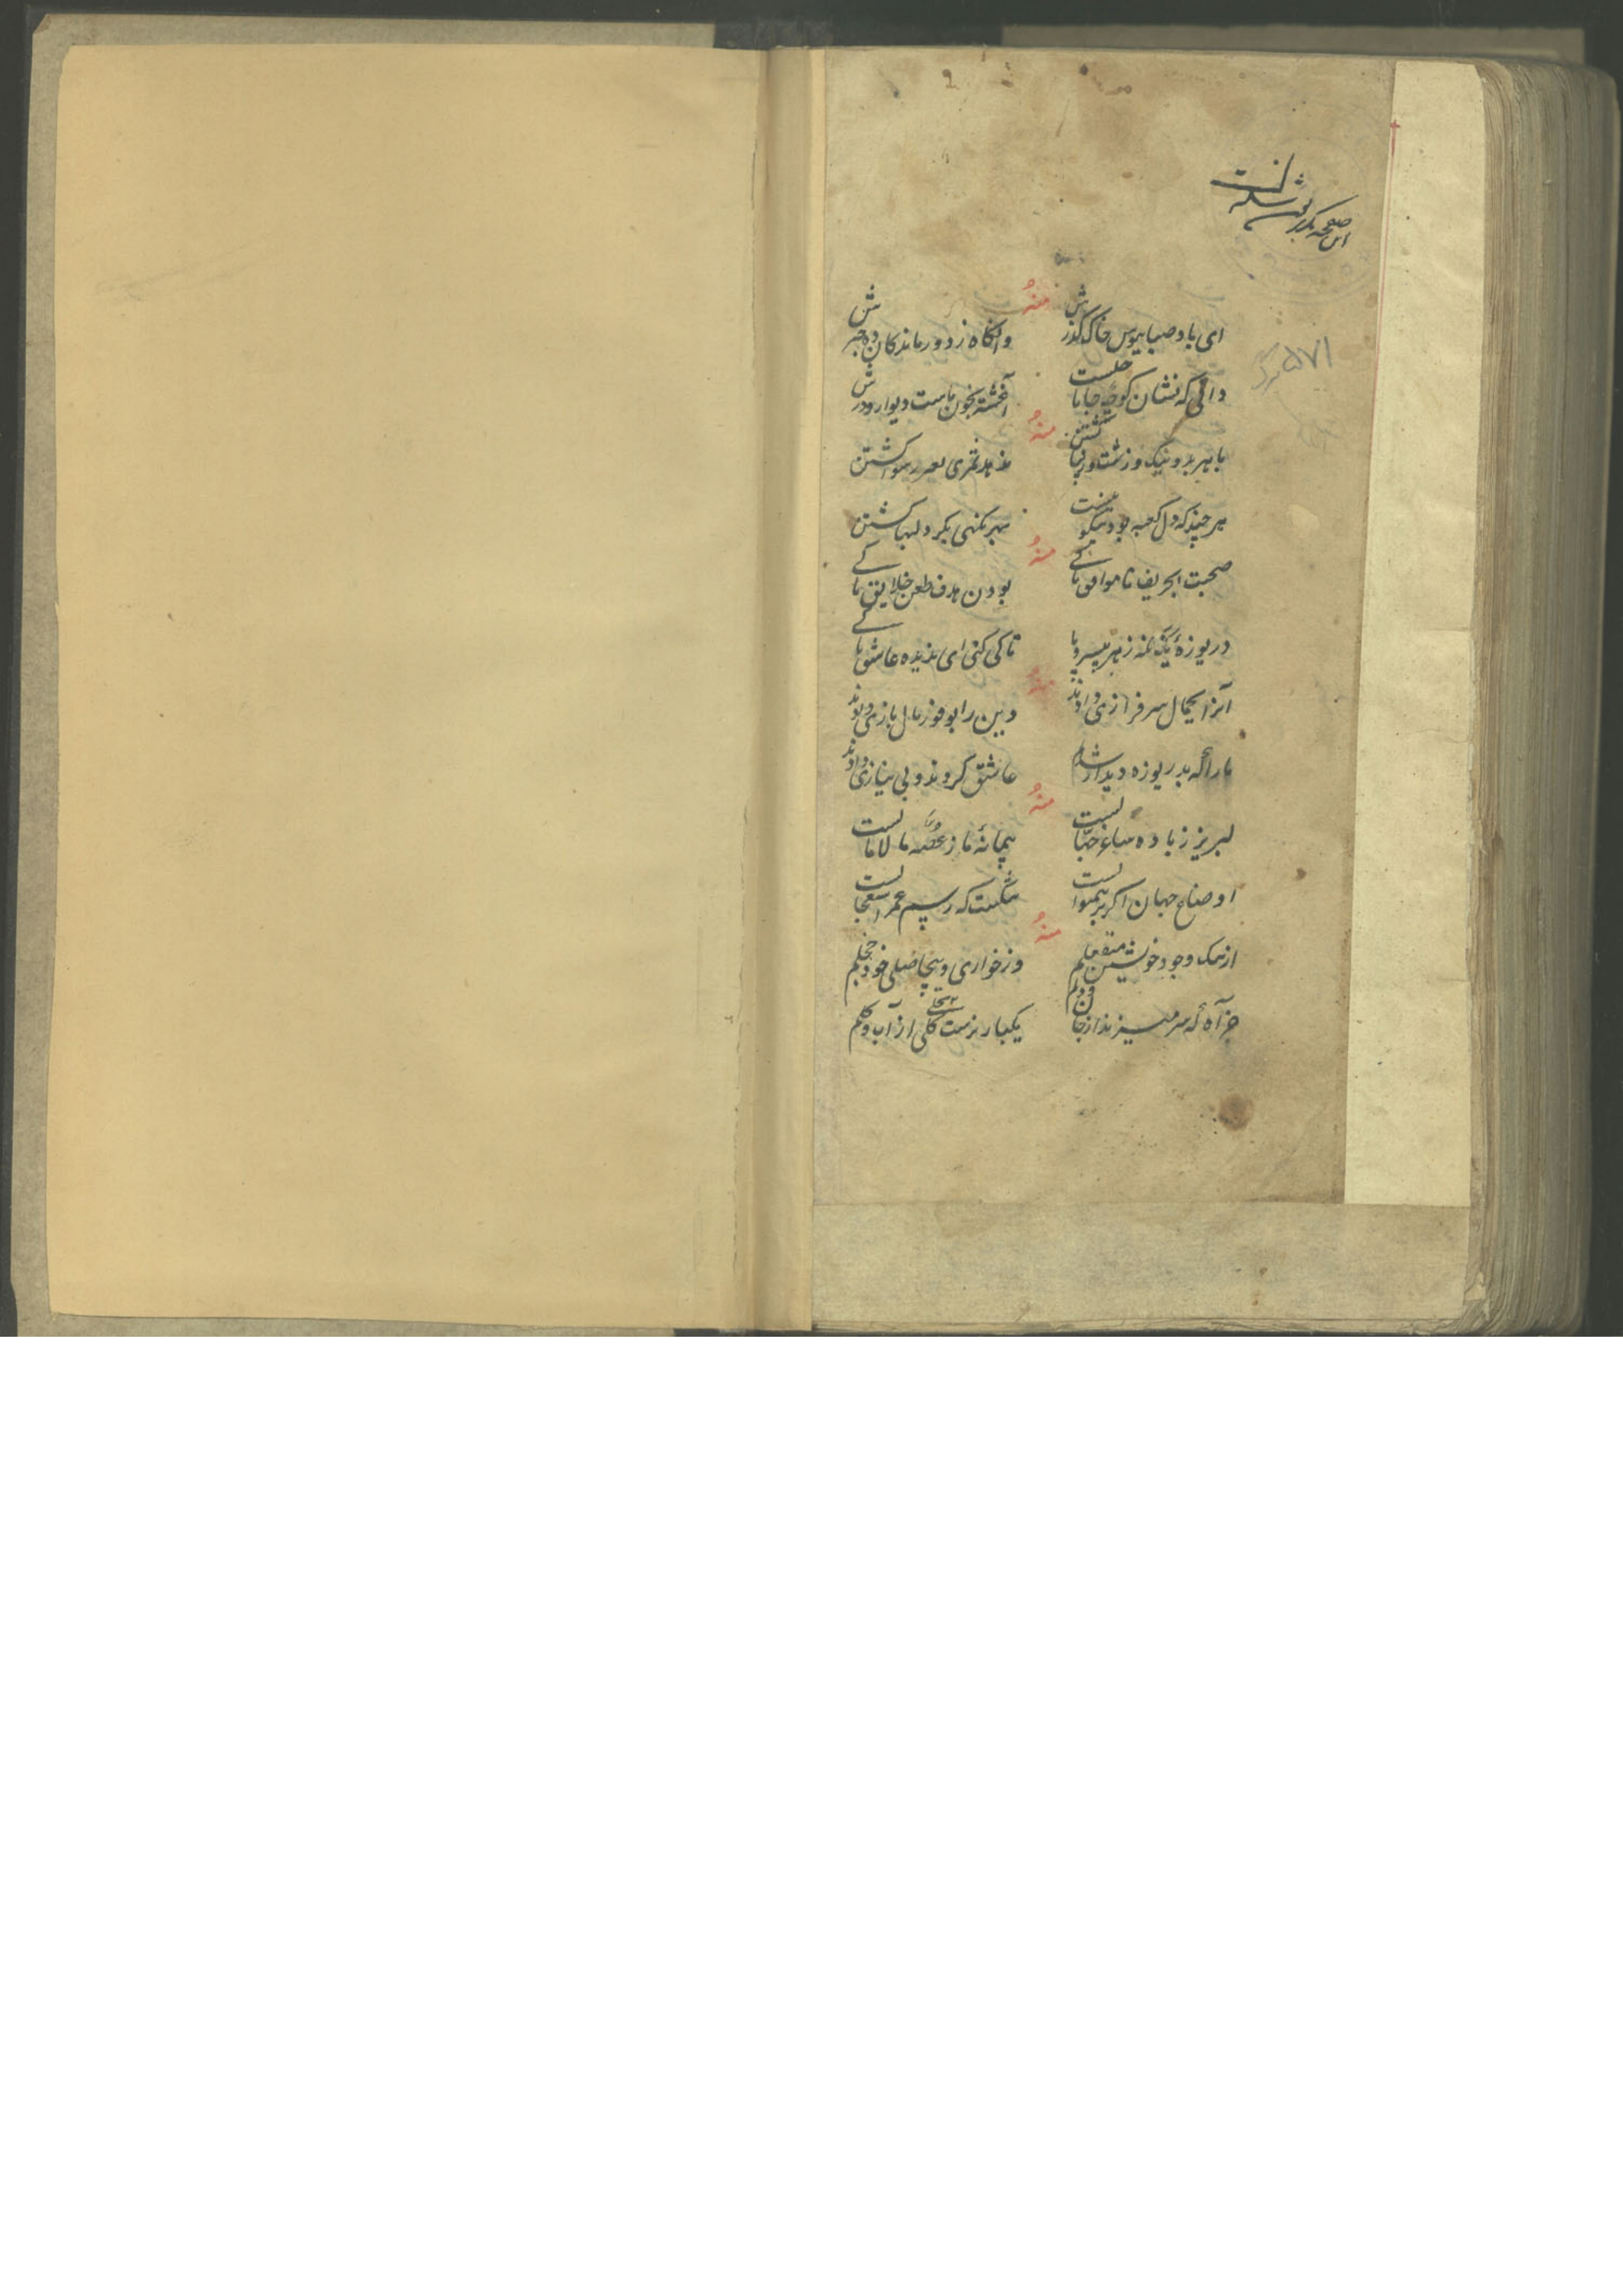 این صفحه
۵۷۱
منهُ
ای باد صبا ببوس خاک گذرش وانگاه ز دور ماندگان ده خبرش
دانی که نشان کوچه جانان چیست آغشته بخون ماست دیوار و درش
منهُ
با هر بد و نیک و زشت و زیبا گشتن ندهد ثمری رسوا گشتن
هر چند که دل کعبه بود نیکو نیست بهر گنهی بگرد دلها گشتن
منهُ
صحبت بحریف ناموافق تا کے بودن هدف طعن خلایق تا کے
دریوزهٔ یک نگه ز هر بیسر و پا تا کی کنی ای ندیده عاشق تا کے
منهُ
آنرا بجمال سرفرازی دادند وین را بوفور مال بازی دادند
ما را که بدریوزه دیدار شدیم عاشق کردند و بی نیازی دادند
منهُ
لبریز ز باده ساغر جهالست پیمانهٔ ما ز غصّه مالامالست
اوضاع جهان اگر برین منوالست شکست که رسم عمر استعجالست
منهُ
از ننگ وجود خویشتن منفعلم وز خواری و بیحاصلی خود خجلم
جز آه که سر میزند از جان و دلم یکبار نرست گلی از آب و گلم